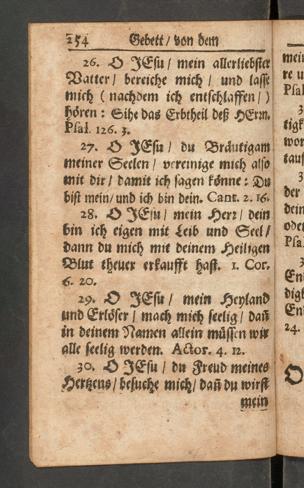 254 Gebett / von dem
26. O JEsu / mein allerliebster
Vatter / bereiche mich / und lasse
mich ( nachdem ich entschlaffen / )
hören : Sihe das Erbtheil deß HErrn.
Psal. 126. 3.
27. O JEsu / du Bräutigam
meiner Seelen / vereinige mich also
mit dir / damit ich sagen könne : Du
bist mein / und ich bin dein. Cant. 2. 16.
28. O JEsu / mein Herr / dein
bin ich eigen mit Leib und Seel /
dann du mich mit deinem Heiligen
Blut theuer erkaufft hast. 1. Cor.
6. 20.
29. O JEsu / mein Heyland
und Erlöser / mach mich seelig / dañ
in deinem Namen allein müssen wir
alle seelig werden. Actor. 4. 12.
30. O JEsu / du Freud meines
Hertzens / besuche mich / dañ du wirst
mein